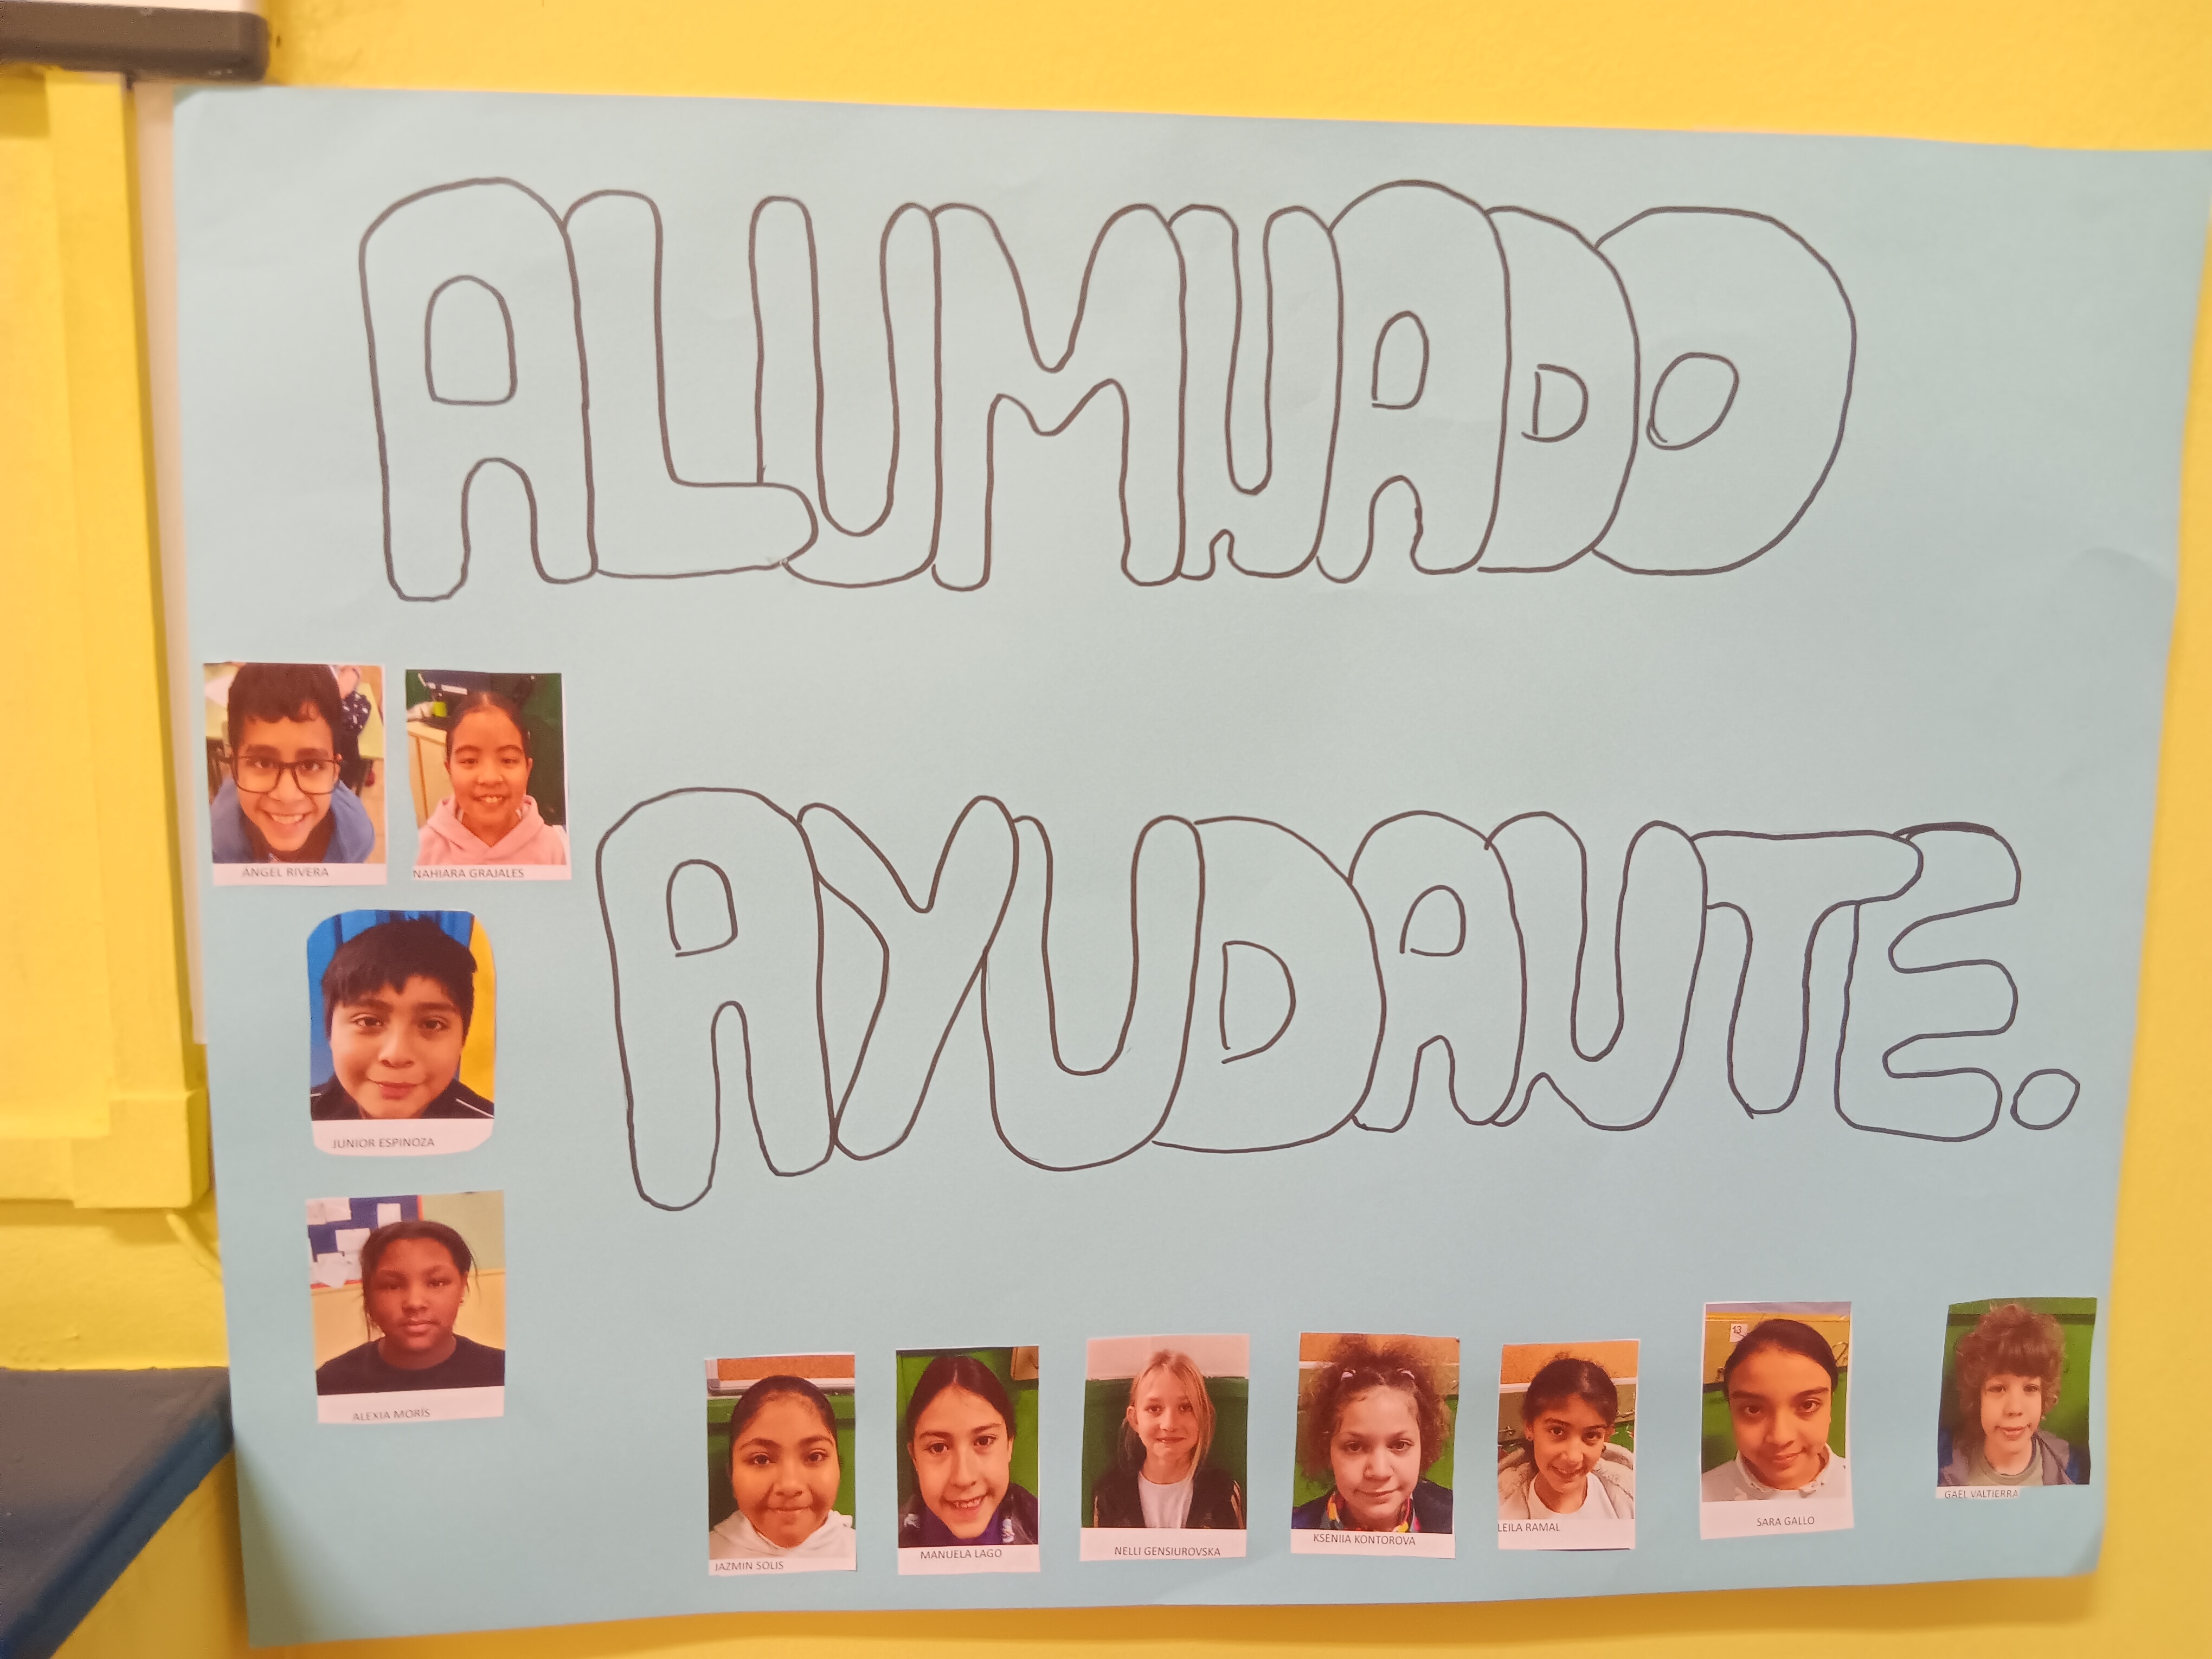 ALUMNADO
ANGEL RIVERA
NAHIARA GRAJALES
AYUDANTE.
JUNIOR ESPINOZA
ALEXIA MORÍS
JAZMIN SOLIS
MANUELA LAGO
NELLI GENSIUROVSKA
KSENIIA KONTOROVA
LEILA RAMAL
13
SARA GALLO
GAEL VALTIERRA